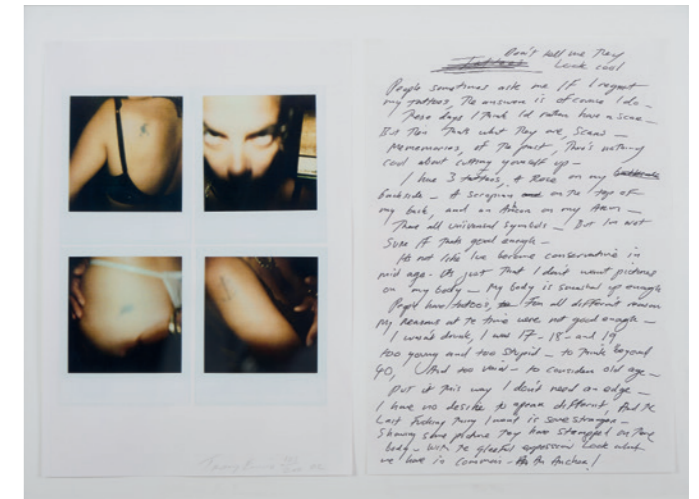 Don't tell me They
Look cool
People sometimes ask me IF I regret
my tattoos, The answer is of course I do –
These days I think Id rather have a scar –
But Then Thats what They are, Scars –
Memories, of the past, There's nothing
cool about cutting yourself up –
I have 3 tattoos, A Rose on my
backside – A scorpion on the top of
my back, and an Anchor on my Arm –
There all universal symbols – But Im not
Sure IF thats good enough –
Its not like Ive become conservative in
mid age – Its just That I don't want pictures
on my body – My body is up enough
People have tattoos, For all different reasons
My Reasons at the time were not good enough –
I wasn't drunk, I was 17 – 18 – and 19
too young and too Stupid – to Think Beyond
40, And too vain – to consider old age –
Put it This way I don't need an edge –
I have no desire to appear different, And the
Last Fucking Thing I want is some stranger –
Showing some picture they have stamped on There
body – With the gleeful expression Look what
we have in common – An Anchor!